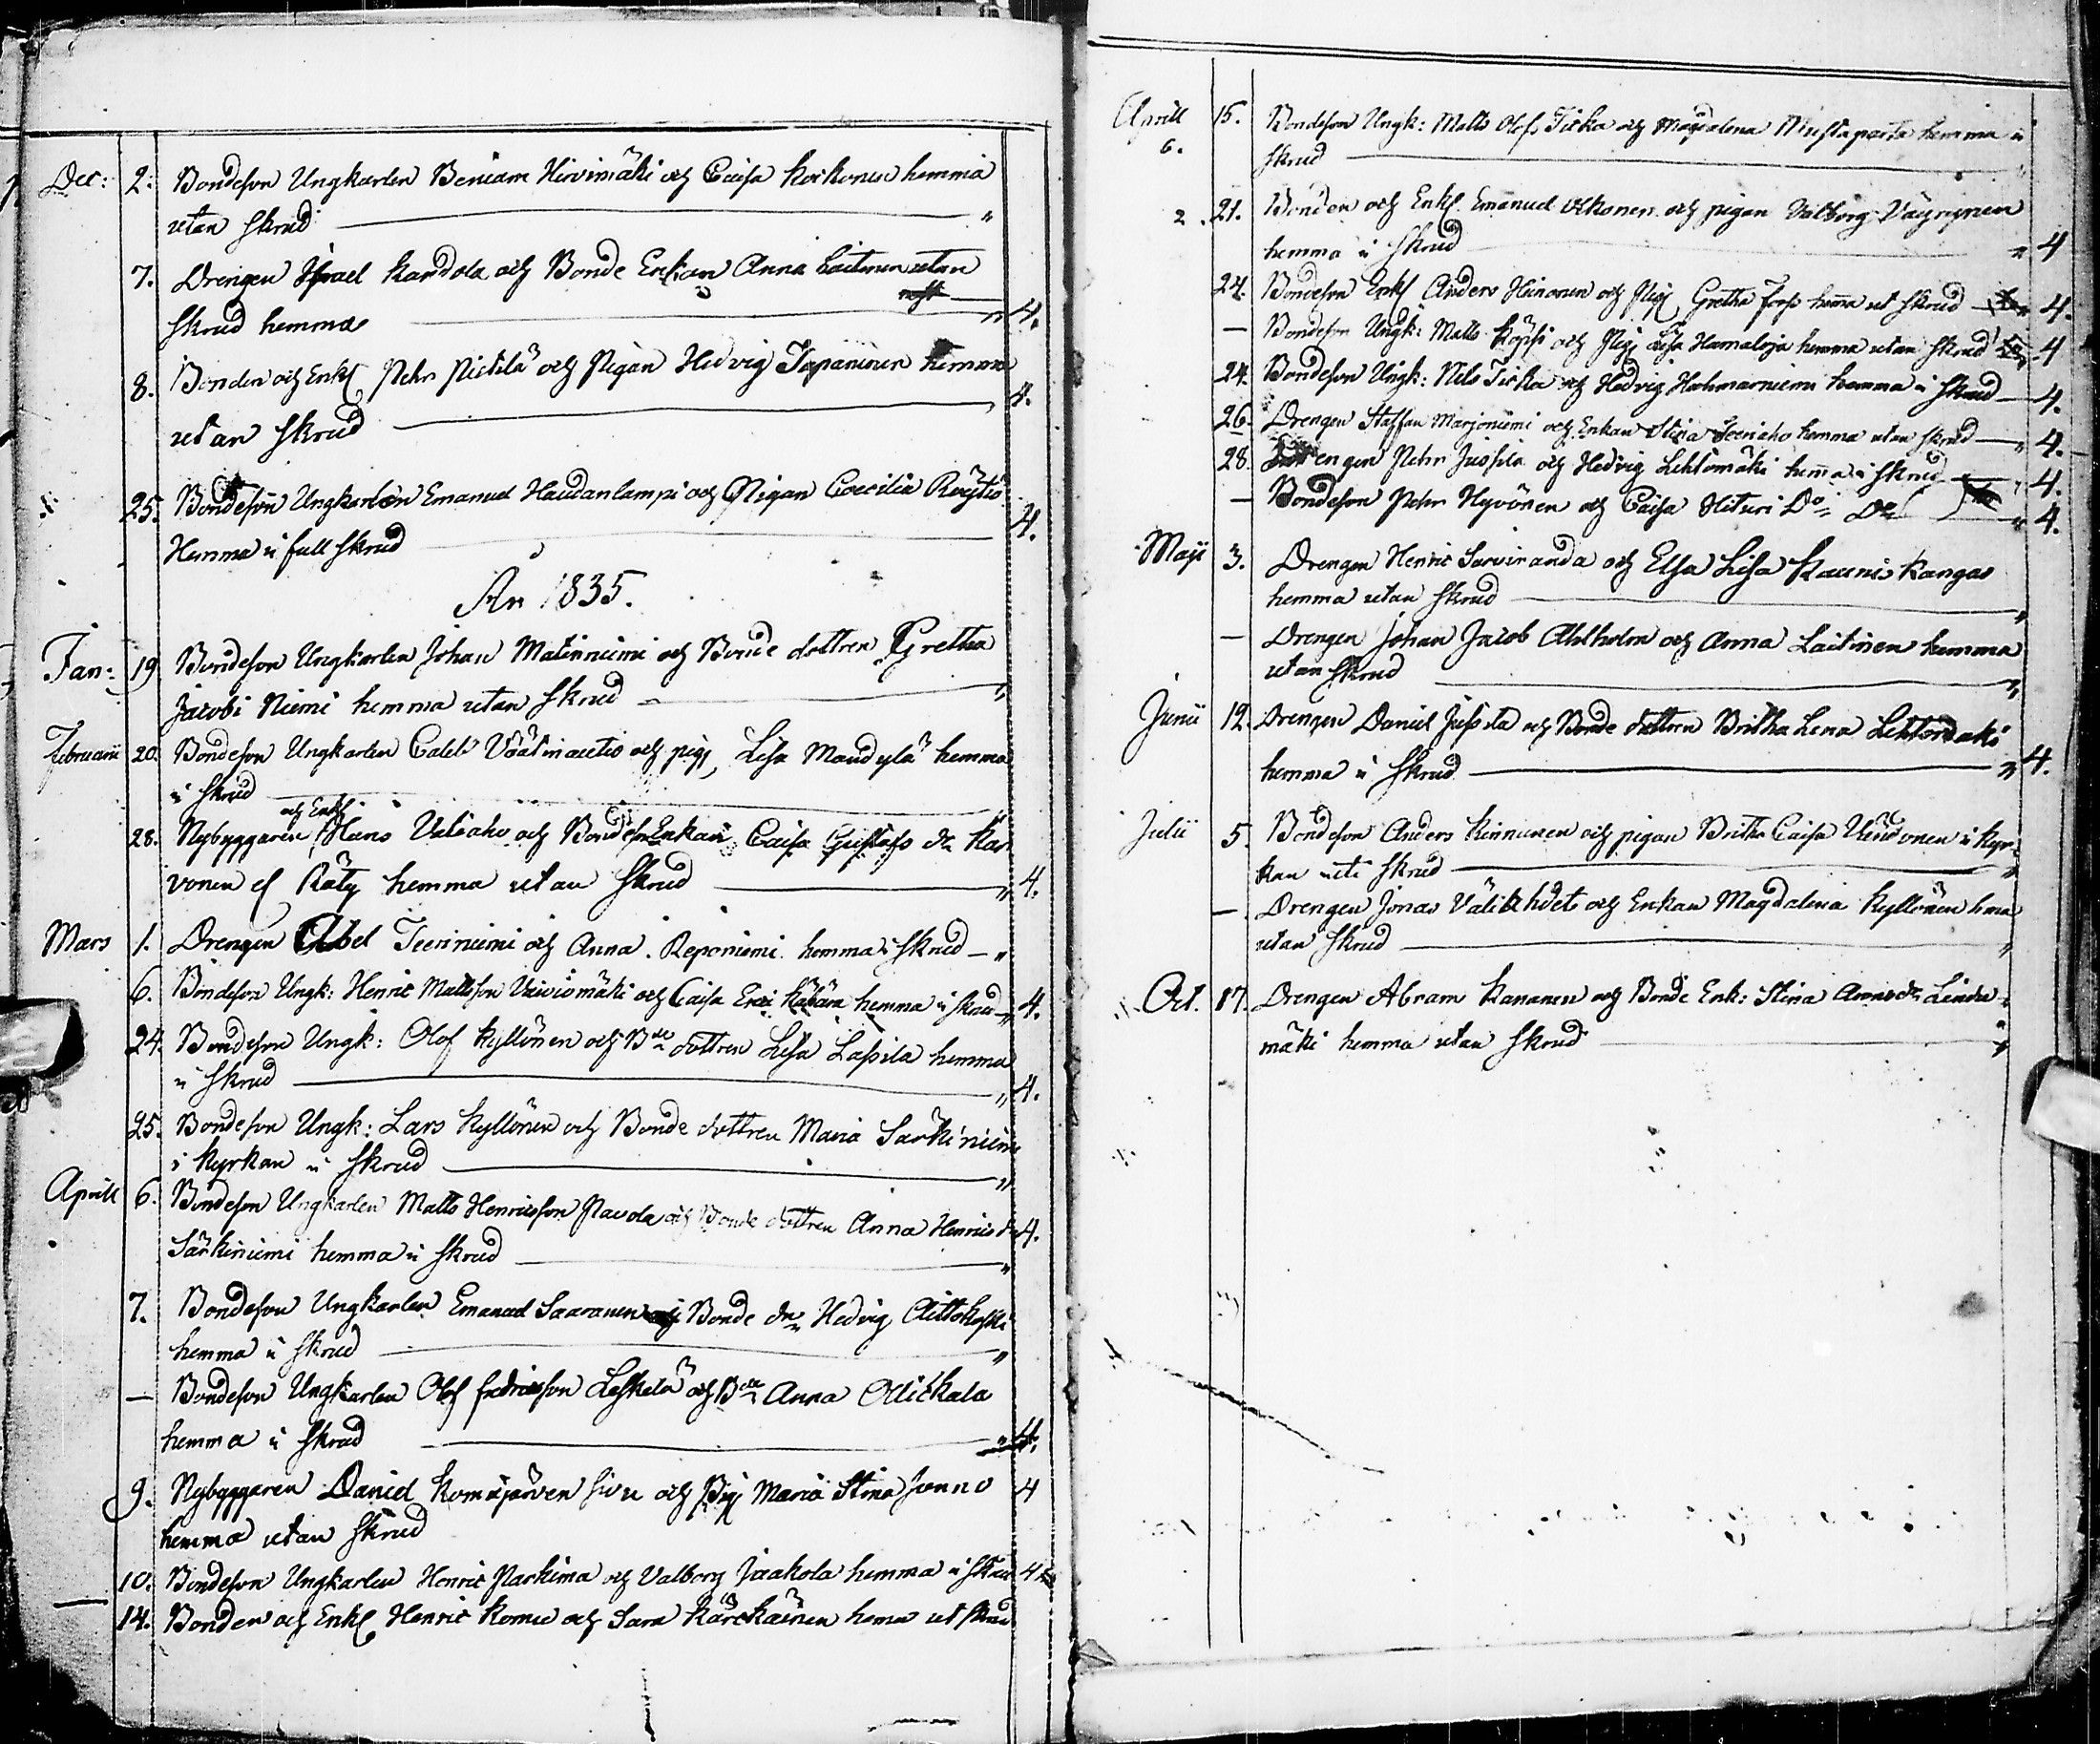 Dec: 2. Bondeson Ungkarlen Beniam Hirvimäki och Caisa Korkonen hemma
utan skrud "
7. Drengen Israel Kardola och Bonde Enkan Anna Laitinen utan
skrud hemma " 4.
8. Bonden och Enkl Pehr Pietilä och Pigan Hedvig Tapaninen hemma
utan skrud 4.
25. Bondeson Ungkarlen Emanuel Haudanlampi och Pigan Caecilia Röytiö
Hemma i full skrud 4.
År 1835.
Jan: 19 Bondeson Ungkarlen Johan Matinniemi och Bonde dottren Gretha
Jacobi Niemi hemma utan skrud "
Februarii 20. Bondeson Ungkarlen Caleb och pig Lisa Mandylä hemma
i skrud "
och Enkl
28. Nybyggaren Hans Valiaho och Bondeson Enkan Caisa Gustafs dr Kar
vonen el Räty hemma utan skrud " 4.
Mars 1. Drengen Abel Teeriniemi och Anna Reponiemi hemma i skrud "
6. Bondeson Ungk: Henric Mattsson och Caisa hemma i skrud " 4.
24. Bondeson Ungk: Olof Kyllönen och Bde dottren Lisa Lassila hemma
i skrud " 4.
25. Bondeson Ungk: Lars Kyllönen och Bonde dottren Maria Särkiniemi
i Kyrkan i skrud "
Aprill 6. Bondeson Ungkarlen Matts Henricsson Pavola och Bonde dottren Anna Henrics dr 4.
Särkiniemi hemma i skrud "
7. Bondeson Ungkarlen Emanuel Saaranen och Bonde dr Hedvig Aittokoski
hemma i skrud "
— Bondeson Ungkarlen Olof Fredricsson Leskelä och Bde Anna Ollickala
hemma i skrud " 4.
9. Nybyggaren Daniel Komujärven sivu och Pig Maria Stina Junno 4
hemma utan skrud
10. Bondeson Ungkarlen Henric Parkima och Valborg Jaakola hemma i skrud 4
14. Bonden och Enkl Henric Komu och Sara Kärckäinen hema ut skrud
Aprill 15. Bondeson Ungk: Matts Olofs Ticka och Magdalena Mustaparta hemma i
6. skrud "
2. 21. Bonden och Enkl. Emanuel Ockonen och pigan Valborg Väyrynen
hemma i skrud " 4
24. Bondeson Enkl Anders Heinonen och Pig Gretha Fors hema ut skrud 4.
— Bondeson Ungk: Matts Köpsi och Pig Lisa Hamaloja hemma utan skrud 4
24. Bondeson Ungk: Nils Ticka och Hedvig Hahmarniemi hemma i skrud 4.
26. Drengen Staffan Marjoniemi och Enkan Stina Teeriaho hemma utan skrud " 4.
28. Drengen Pehr Jussila och Hedvig Lehtomäki hema i skrud " 4.
— Bondeson Pehr Hyvönen och Caisa Hituri Do Do " 4.
Maji 3. Drengen Henric Sarviranda och Elsa Lisa Kaunis Kangas
hemma utan skrud "
— Drengen Johan Jacob Ahlholm och Anna Laitinen hemma
utan skrud "
Junii 12. Drengen Daniel Jussila och Bonde dottren Britha Lena
hemma i skrud " 4.
Julii 5. Bondeson Anders Kinnunen och pigan Britha Caisa i Kyr-
kan uti skrud "
— Drengen Jonas och Enkan Magdalena Kyllönen hma
utan skrud "
Oct. 17. Drengen Abram Kananen och Bonde Enk: Stina Anders dr Linda-
mäki hemma utan skrud "